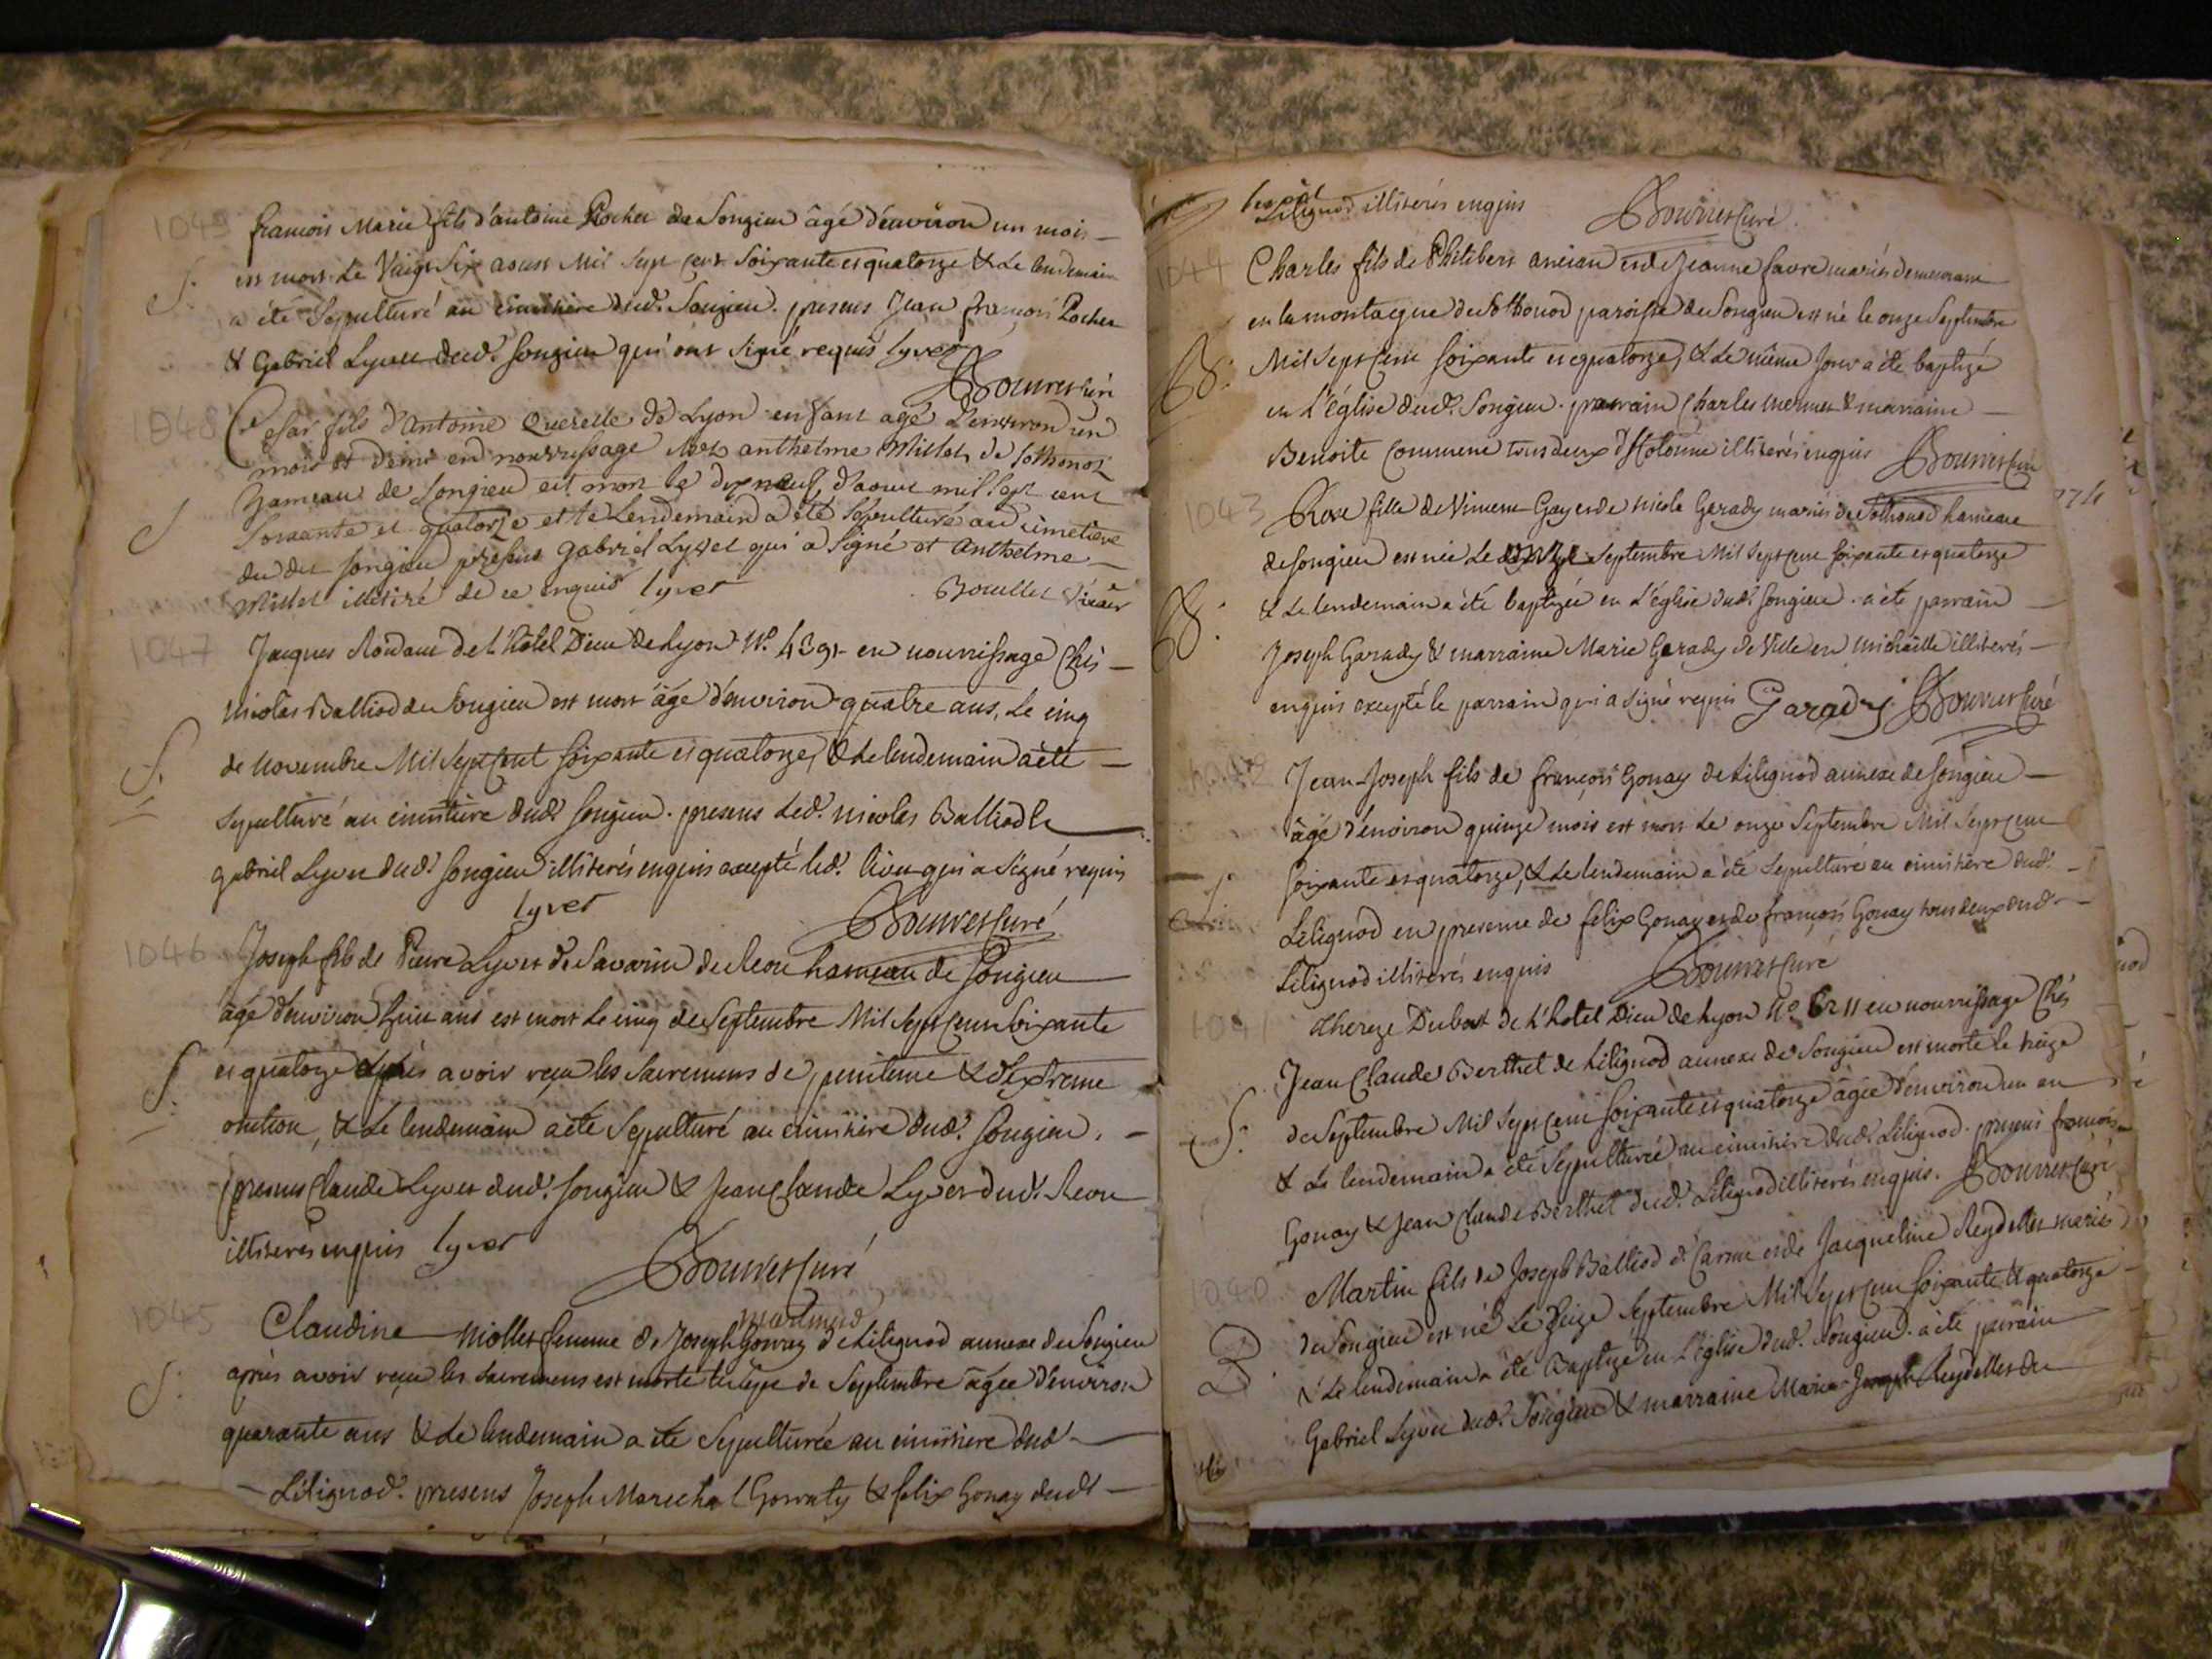 1049
francois Marie fils d'antoine Rochex de Songieu âgé d'environ un mois
est mort Le Vingt Six aoust Mil Sept cent Soixante et quatorze & Le lendemain
S.
a été Sepulturé au cimitiere dud. Songieu. presens Jean francois Rochex
& Gabriel Lyvet dud. Songieu qui ont signé requis lyvet
Bouvet Curé
1048
Cesar fils d'Antoine Querelle de Lyon enfant agé d'environ un
mois et demi en nourrissage chez anthelme Millet de Sothonod
hameau de Songieu est mort le dix neuf d'aout mil sept cent
S
soixante et quatorze et le Lendemain a été sepulturé au cimetiere
du dit Songieu presens Gabriel Lyvet qui a signé et Anthelme
Millet illitéré de ce enquis lyvet
Bouillet Vicaire
1047
Jacques de l'hôtel Dieu de Lyon N° en nourrissage Chés
nicolas Balliod de Songieu est mort âgé d'environ quatre ans, Le cinq
S.
de novembre Mil Sept Cent soixante et quatorze, & Le lendemain a été
sepulturé au cimitiere dud. Songieu. presens Led. nicolas Balliod &
gabriel Lyvet dud. Songieu illiterés enquis excepté led. livet qui a signé requis
lyvet
Bouvet Curé
1046
Joseph fils de Pierre Lyvet de Savarin de hameau de Songieu
âgé d'environ huit ans est mort Le cinq de Septembre Mil Sept Cent soixante
S.
et quatorze après avoir reçu les Sacremens de penitence & d'Extreme
onction, & Le lendemain a été Sepulturé au cimitiere dud. Songieu.
presens Claude Lyvet dud. Songieu & Jean Claude Lyvet dud.
illiterés enquis lyvet
Bouvet Curé
1045
Claudine Miollet femme de Joseph Gonay de Lilignod annexe de Songieu
S.
après avoir reçu les Sacremens est morte le de Septembre âgée d'environ
quarante ans & Le lendemain a été Sepulturée au cimitiere dud
Lilignod. presens Joseph Marechal & felix Gonay dudt
Lilignod illiterés enquis
Bouvet Curé
1044
Charles fils de Philibert ancian et de Jeanne favre mariés demeurant
en la montagne de Sothonod paroisse de Songieu est né le onze Septembre
B.
Mil Sept Cent soixante et quatorze, & Le même jour a été baptizé
en L'Église dud. Songieu. parrain Charles & marraine
Benoite tous deux d'hotonne illiterés enquis Bouvet Curé
1043
Rose fille de Vincent Gay et de nicole Gerady mariés de Sothonod hameau
de Songieu est née Le Septembre Mil Sept Cent soixante et quatorze
B.
& Le lendemain a été baptizée en L'église dud. Songieu. a été parrain
Joseph Garady & marraine Marie Garady de Ville en michaille illiterés
enquis excepté le parrain qui a signé requis Garady Bouvet Curé
1042
Jean Joseph fils de françois Gonay de Lilignod annexe de Songieu
âgé d'environ quinze mois est mort Le onze Septembre Mil Sept Cent
S
soixante et quatorze, & Le lendemain a été Sepulturé au cimitiere dud.
Lilignod en presence de felix Gonay et de françois Gonay tous deux dud
Lilignod illiterés enquis
Bouvet Curé
1041
therese Dubost de L'hotel Dieu de Lyon N° 6211 en nourrissage Chés
Jean Claude Berthet de Lilignod annexe de Songieu est morte le treize
S.
de Septembre Mil Sept Cent soixante et quatorze âgée d'environ un an
& Le lendemain a été Sepulturée au cimitiere dud. Lilignod. presens francois
Gonay & Jean Claude Berthet dud. Lilignod illiterés enquis. Bouvet Curé
1040
Martin fils de Joseph Balliod d' et de Jacqueline Reydellet mariés
de Songieu est né Le Seize Septembre Mil Sept Cent soixante & quatorze
B
& Le lendemain a été Baptizé en L'église dud. Songieu. a été parrain
Gabriel Lyvet dud. Songieu & marraine Marie Joseph Reydellet de